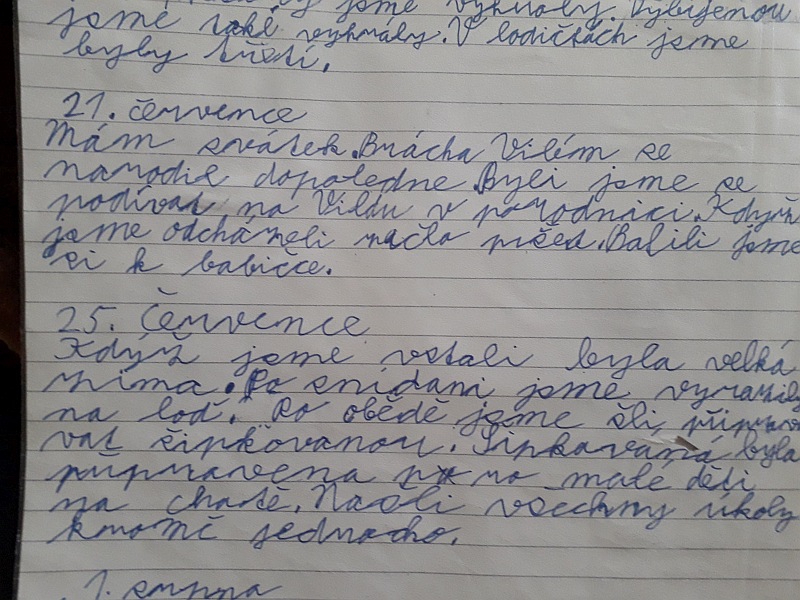 jsme vyhrály. Vybíjenou
jsme také vyhrály. V lodičkách jsme
byly třetí.
21. července
Mám svátek. Brácha Vilém se
narodil dopoledne. Byli jsme se
podívat na Vildu v porodnici. Když
jsme odcházeli začlo pršet. Balili jsme
si k babičce.
25. Července
Když jsme vstali byla velká
zima. Po snídani jsme vyrazily
na loď. Po obědě jsme šli připravo
vat šipkovanou. Šipkovaná byla
připravena pro malé děti
na chatě. Našli všechny úkoly
kromě jednoho.
1. srpna